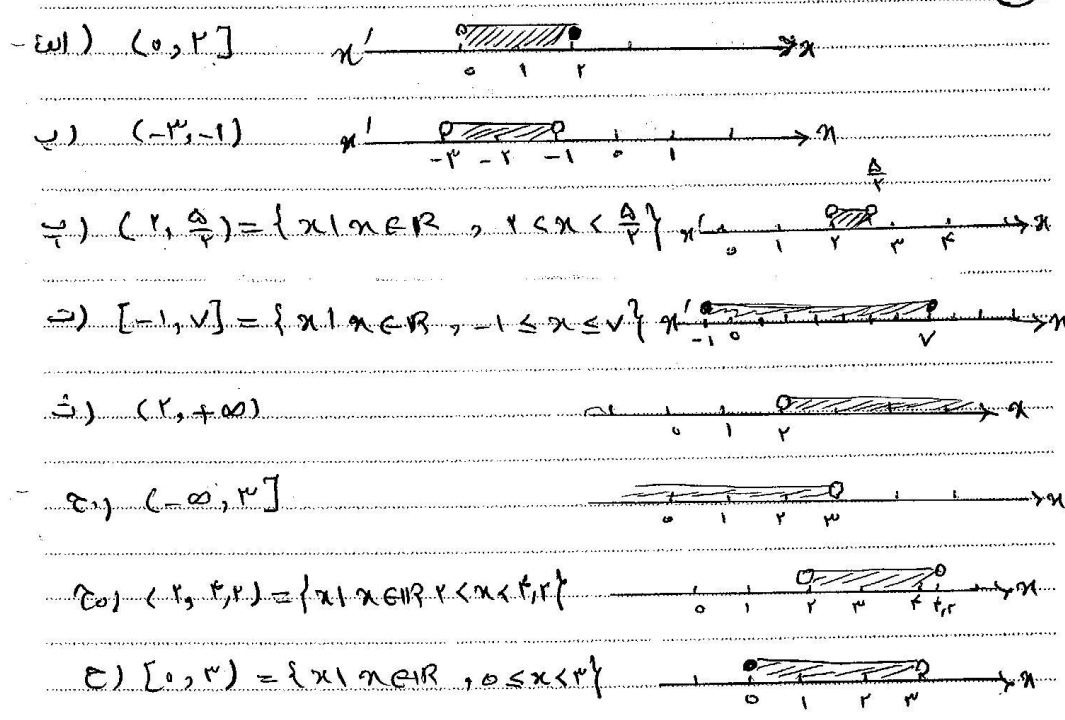 الف) (۰, ۲] x' ۰ ۱ ۲ x
ب) (-۳, -۱) x' -۳ -۲ -۱ ۰ ۱ x
پ) (۲, ۵/۲) = {x | x ∈ R , ۲ < x < ۵/۲} x' ۰ ۱ ۲ ۵/۲ ۳ ۴ x
ت) [-۱, ۷] = {x | x ∈ R , -۱ ≤ x ≤ ۷} x' -۱ ۰ ۷ x
ث) (۲, +∞) ۰ ۱ ۲ x
ج) (-∞, ۳] ۰ ۱ ۲ ۳ x
چ) (۲, ۴,۲) = {x | x ∈ IR ۲ < x < ۴,۲} ۰ ۱ ۲ ۳ ۴ ۴,۲ x
ح) [۰, ۳) = {x | x ∈ IR , ۰ ≤ x < ۳} ۰ ۱ ۲ ۳ x